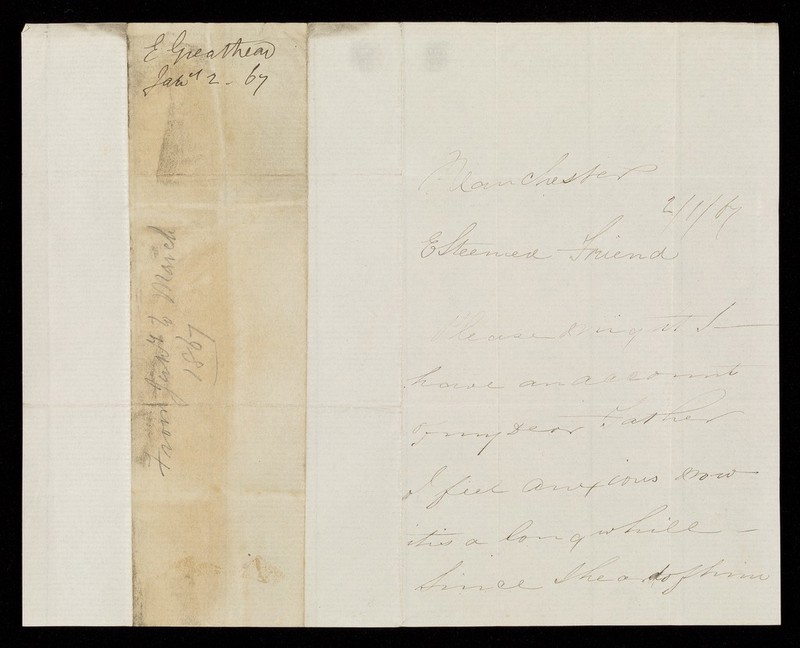 E Greathead
Jany 2 - 67
From Jany 2 to March
1867
Manchester
2/1/67
Esteemed Friend
Please might I
have an account
of my Dear Father
I feel anxious now
it is a long while -
since I heard of him